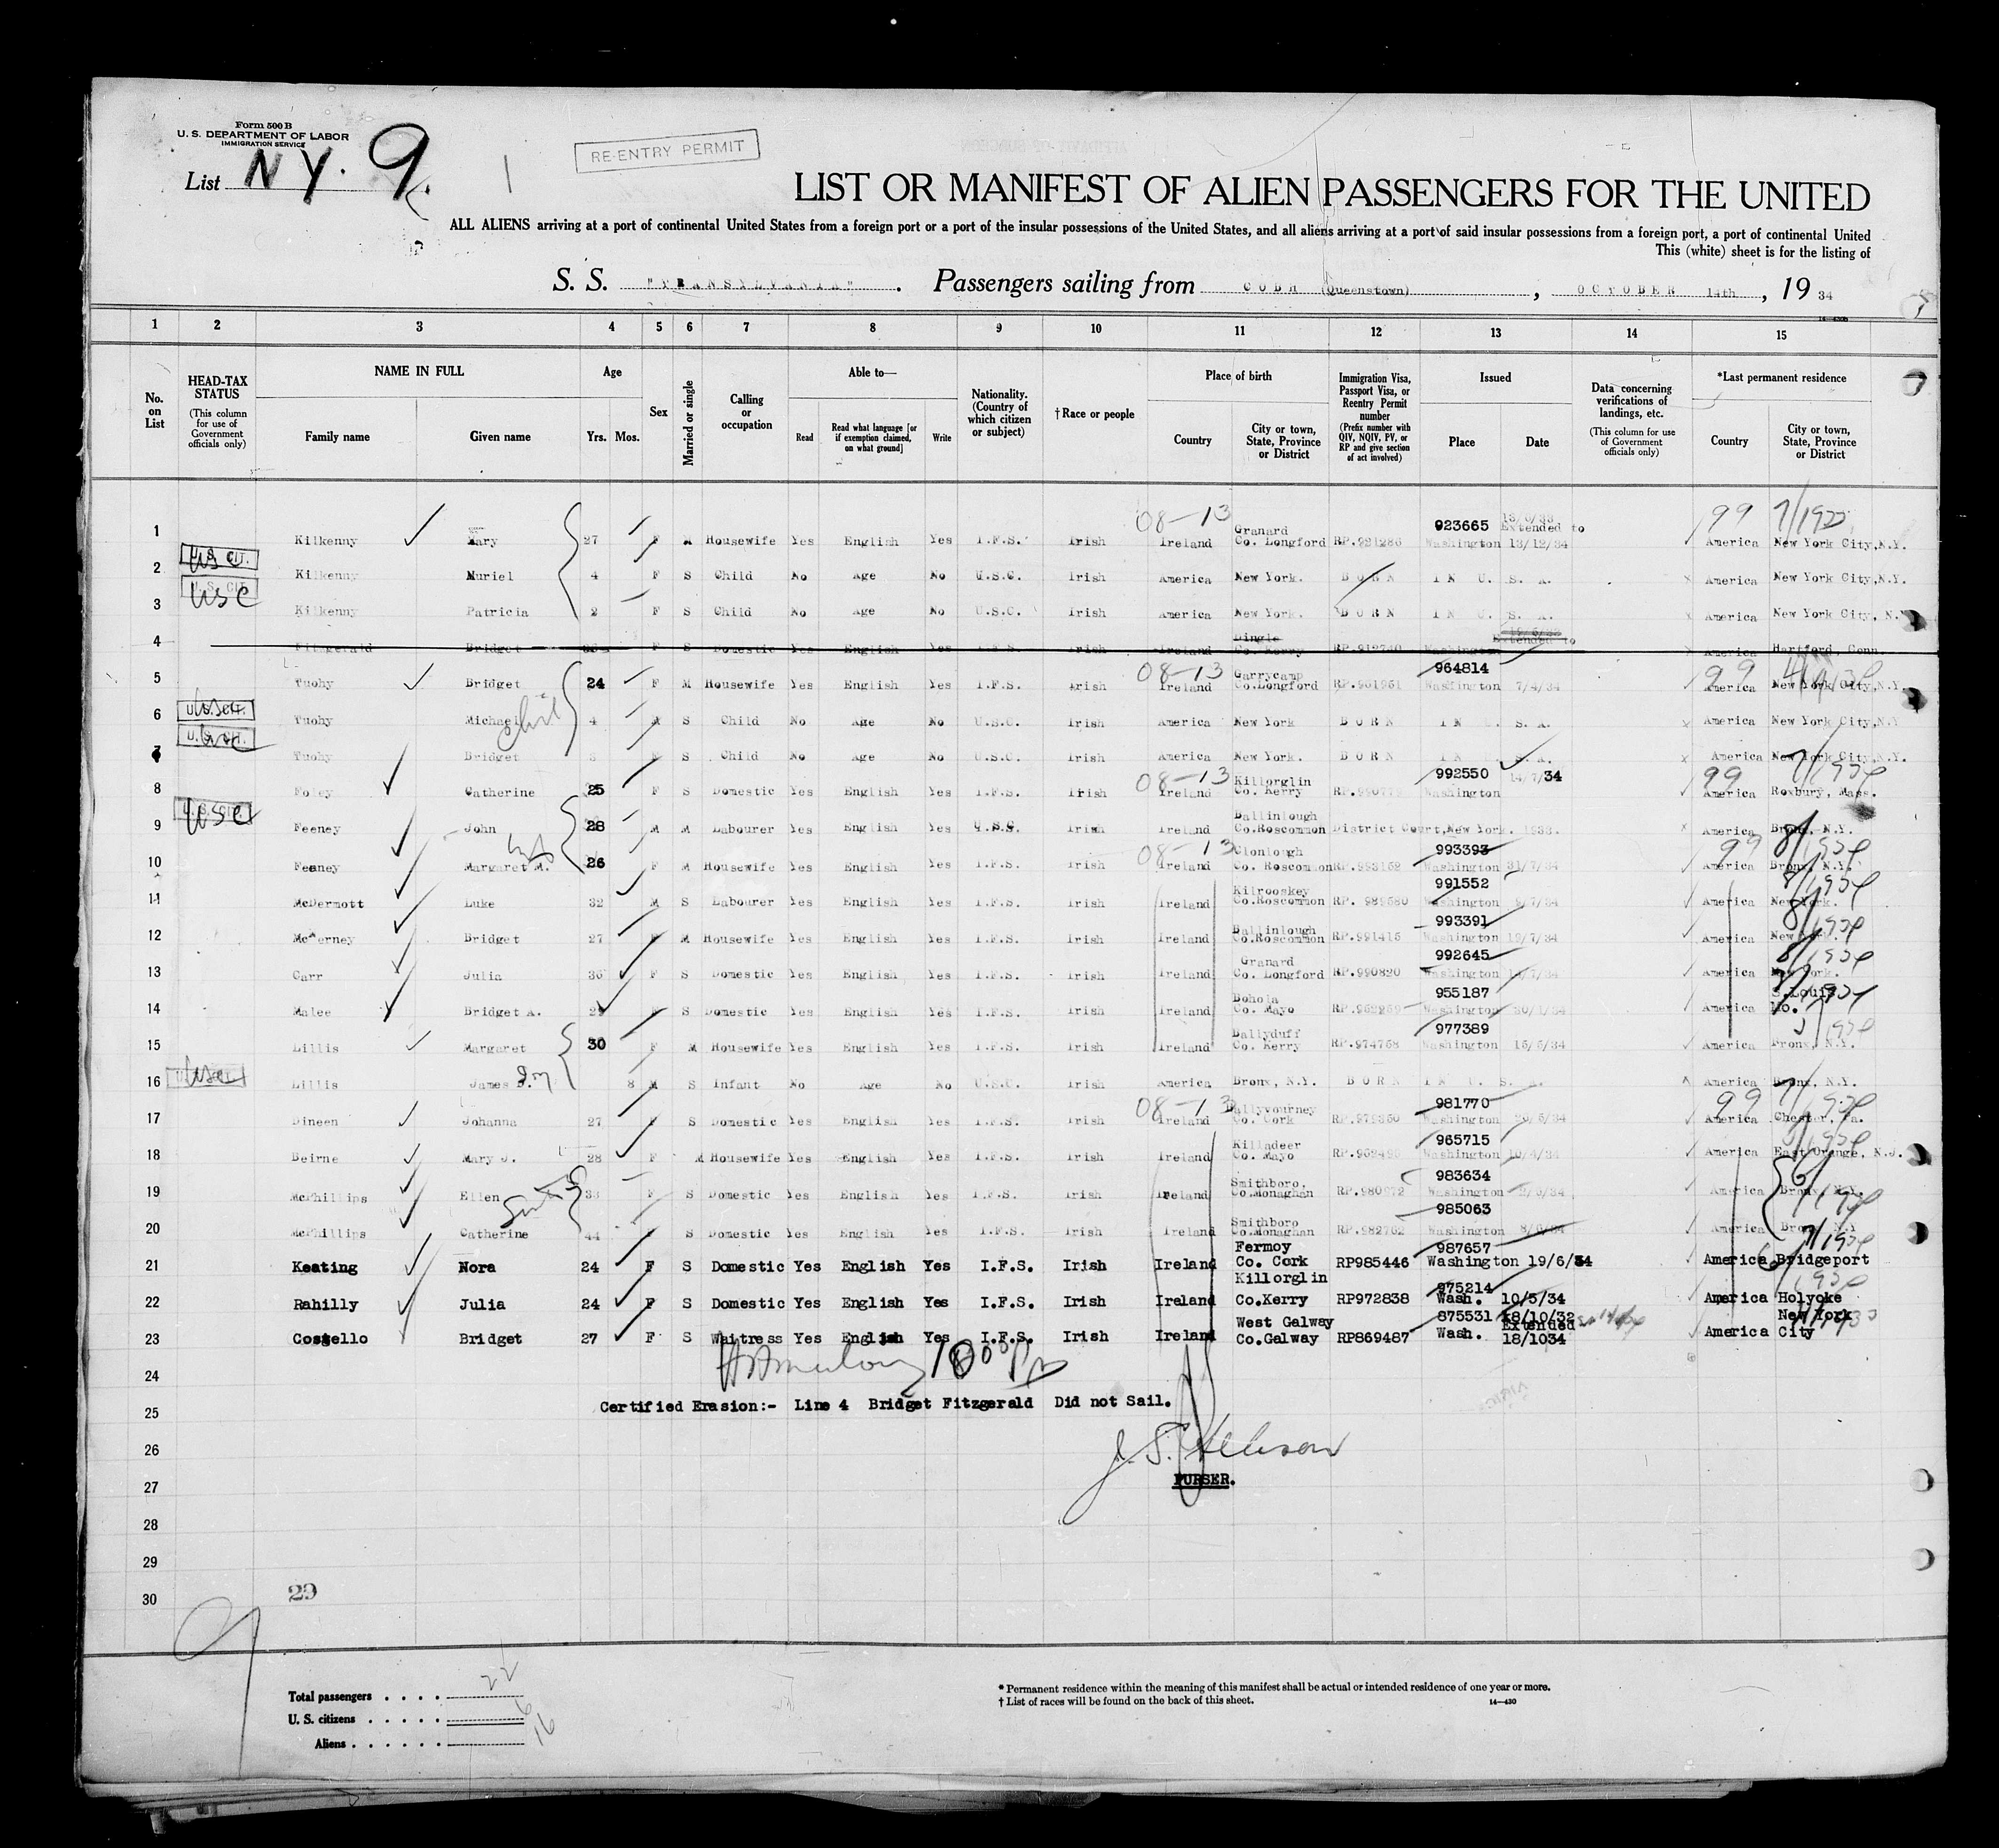 Form 500 B
U. S. DEPARTMENT OF LABOR
IMMIGRATION SERVICE
List N Y. 9.
RE-ENTRY PERMIT
LIST OR MANIFEST OF ALIEN PASSENGERS FOR THE UNITED
ALL ALIENS arriving at a port of continental United States from a foreign port or a port of the insular possessions of the United States, and all aliens arriving at a port of said insular possessions from a foreign port, a port of continental United
This (white) sheet is for the listing of
S. S. "TRANSYLVANIA". Passengers sailing from COBH (Queenstown), OCTOBER 14th, 19 34
1 2 3 4 5 6 7 8 9 10 11 12 13 14 15
No. on List
HEAD-TAX STATUS (This column for use of Government officials only)
NAME IN FULL Family name Given name
Age Yrs. Mos.
Sex
Married or single
Calling or occupation
Able to— Read Read what language [or if exemption claimed, on what ground] Write
Nationality. (Country of which citizen or subject)
†Race or people
Place of birth Country City or town, State, Province or District
Immigration Visa, Passport Visa, or Reentry Permit number (Prefix number with QIV, NQIV, PV, or RP and give section of act involved)
Issued Place Date
Data concerning verifications of landings, etc. (This column for use of Government officials only)
*Last permanent residence Country City or town, State, Province or District
08-13 Granard 923665 Extended to 99
1 Kilkenny Mary 27 F M Housewife Yes English Yes I.F.S. Irish Ireland Co. Longford RP.921286 Washington 13/12/34 America New York City,N.Y.
U.S. CIT. USC
2 Kilkenny Muriel 4 F S Child No Age No U.S.C. Irish America New York. BORN IN U. S. A. America New York City,N.Y.
U.S. CIT. USC
3 Kilkenny Patricia 2 F S Child No Age No U.S.C. Irish America New York. BORN IN U. S. A. America New York City, N.Y.
Dingle Extended to
4 Fitzgerald Bridget F S Domestic Yes English Yes I.F.S. Irish Ireland Co. Kerry RP.912740 Washington America Hartford, Conn.
08-13 Garrycamp 964814 99
5 Tuohy Bridget 24 F M Housewife Yes English Yes I.F.S. Irish Ireland Co.Longford RP.961951 Washington 7/4/34 America New York City,N.Y.
U.S.CIT.
6 Tuohy Michael 4 M S Child No Age No U.S.C. Irish America New York BORN IN U. S. A. America New York City,N.Y
U.S. CIT.
7 Tuohy Bridget F S Child No Age No U.S.C. Irish America New York. BORN IN U. S. A. America New York City,N.Y.
08-13 Killorglin 992550 14/7/34 99
8 Foley Catherine 25 F S Domestic Yes English Yes I.F.S. Irish Ireland Co. Kerry Washington America Roxbury, Mass.
USC Ballinlough
9 Feeney John 28 M M Labourer Yes English Yes U.S.C. Irish Ireland Co.Roscommon District Court,New York. 1933. America Bronx, N.Y.
08-13 Clonlough 993393 99
10 Feeney Margaret M. 26 F M Housewife Yes English Yes I.F.S. Irish Ireland Co. Roscommon RP.993152 Washington 31/7/34 America Bronx, N.Y.
Kilrooskey 991552
11 McDermott Luke 32 M S Labourer Yes English Yes I.F.S. Irish Ireland Co.Roscommon RP. 989580 Washington America New York.
Ballinlough 993391
12 McTerney Bridget 27 F M Housewife Yes English Yes I.F.S. Irish Ireland Co.Roscommon RP.991415 Washington 19/7/34 America New York.
Granard 992645
13 Carr Julia 36 F S Domestic Yes English Yes I.F.S. Irish Ireland Co. Longford RP.990820 Washington America New York.
Bohola 955187 S.Louis
14 Malee Bridget A. F S Domestic Yes English Yes I.F.S. Irish Ireland Co. Mayo Washington America Mo.
Ballyduff 977389
15 Lillis Margaret 30 F M Housewife Yes English Yes I.F.S. Irish Ireland Co. Kerry RP.974758 Washington 15/5/34 America Bronx, N.Y.
16 Lillis James 8 M S Infant No Age No U.S.C. Irish America Bronx, N.Y. BORN IN U. S. A. America Bronx, N.Y.
08-13 Ballyvourney 981770 99
17 Dineen Johanna 27 F S Domestic Yes English Yes I.F.S. Irish Ireland Co. Cork Washington America Chester, Pa.
Killadeer 965715
18 Beirne Mary J. 28 F M Housewife Yes English Yes I.F.S. Irish Ireland Co. Mayo Washington 10/4/34 America East Orange, N.J.
Smithboro. 983634
19 McPhillips Ellen F S Domestic Yes English Yes I.F.S. Irish Ireland Co.Monaghan RP.980972 Washington America Bronx, N.Y.
Smithboro 985063
20 McPhillips Catherine 44 F S Domestic Yes English Yes I.F.S. Irish Ireland Co.Monaghan RP.982762 Washington 8/6/34 America Bronx, N.Y
Fermoy 987657
21 Keating Nora 24 F S Domestic Yes English Yes I.F.S. Irish Ireland Co. Cork RP985446 Washington 19/6/34 America Bridgeport
Killorglin 975214
22 Rahilly Julia 24 F S Domestic Yes English Yes I.F.S. Irish Ireland Co.Kerry RP972838 Wash. 10/5/34 America Holyoke
West Galway 875531 18/10/32 Extended New York
23 Costello Bridget 27 F S Waitress Yes English Yes I.F.S. Irish Ireland Co.Galway RP869487 Wash. 18/1034 America City
24
25 Certified Erasion:- Line 4 Bridget Fitzgerald Did not Sail.
26
27 PURSER.
28
29
30 29
Total passengers . . . . 22
U. S. citizens . . . . . 6
Aliens . . . . . . 16
* Permanent residence within the meaning of this manifest shall be actual or intended residence of one year or more.
† List of races will be found on the back of this sheet.
14—430